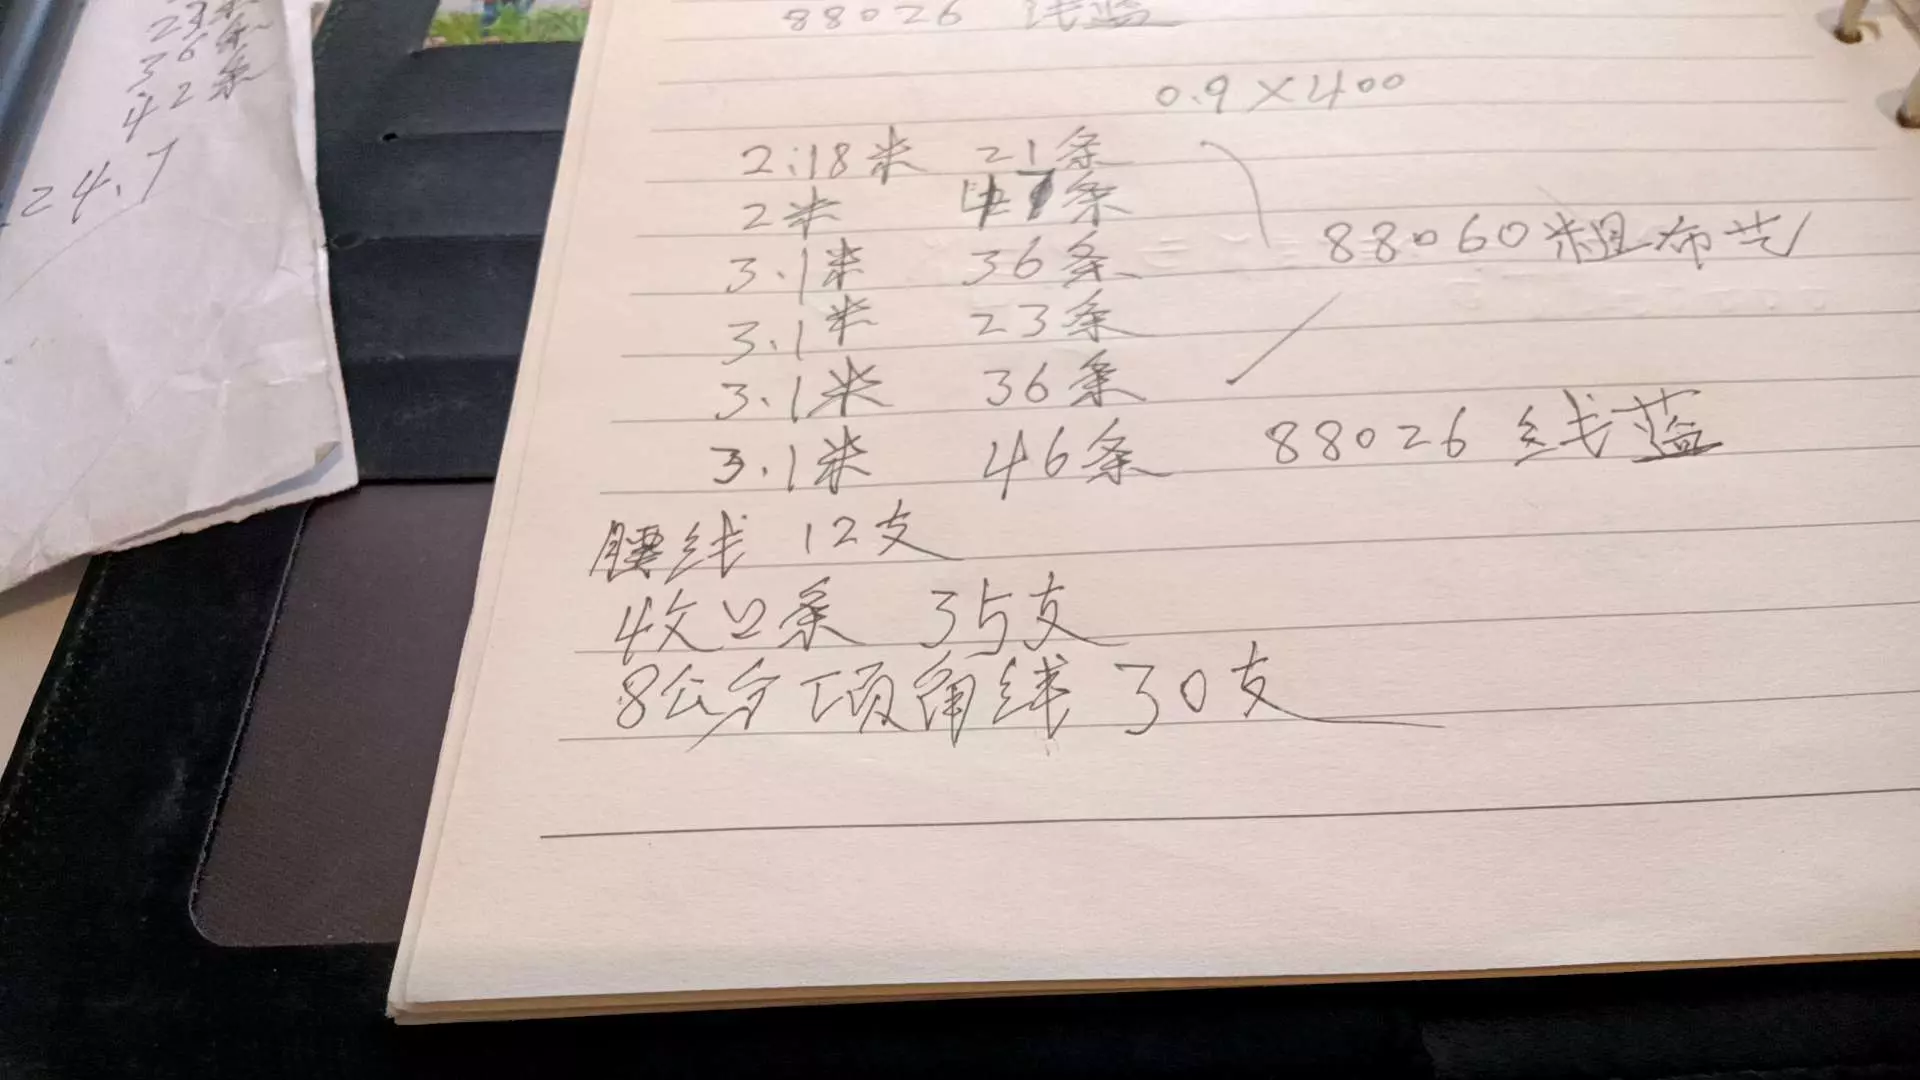 23条
36条
42条
24.7
88026 线蓝
0.9×400
2.18米 21条
2米 47条
3.1米 36条
88060粗布艺
3.1米 23条
3.1米 36条
3.1米 46条 88026 线蓝
腰线 12支
收口条 35支
8公分顶角线 30支